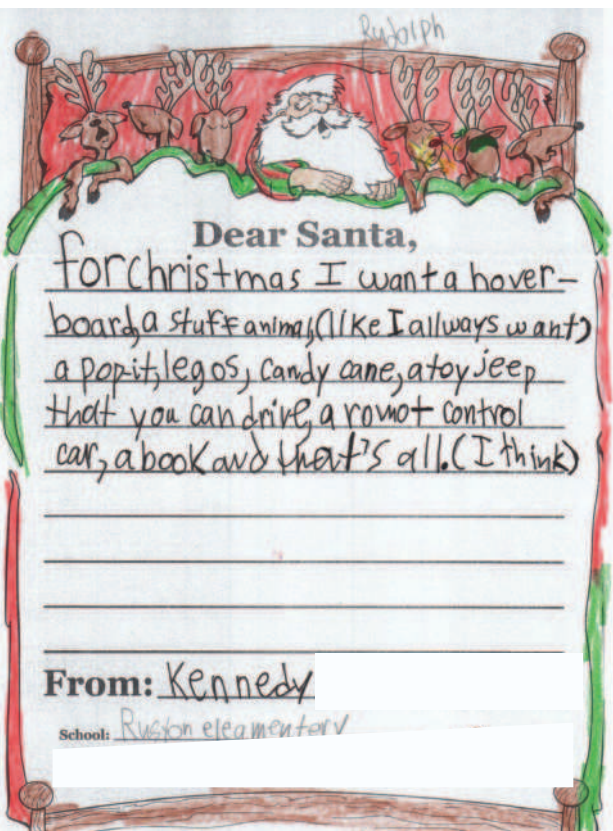 Rudolph
Dear Santa,
for christmas I want a hover-
board, a stuff animal, (like I allways want)
a pop-it, legos, candy cane, a toy jeep
that you can drive, a romot control
car, a book and that's all. (I think)
From: Kennedy
School: Ruston eleamentery